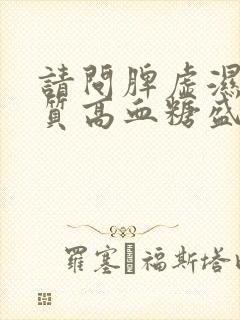 請問脾虛濕
質高血糖盛
羅塞 福斯塔